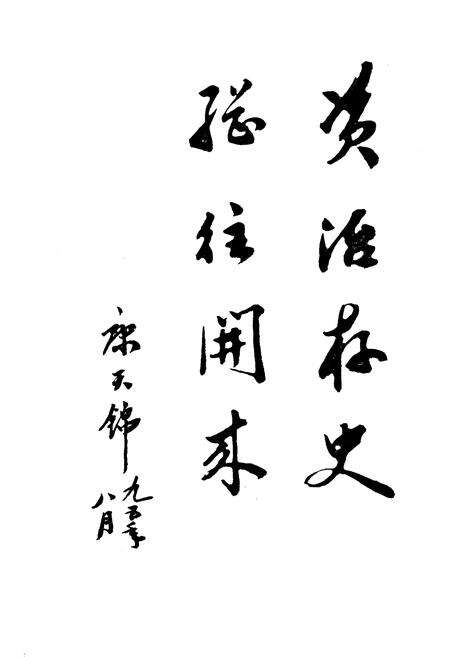 资治存史
继往開来
康天锦
九五年
八月